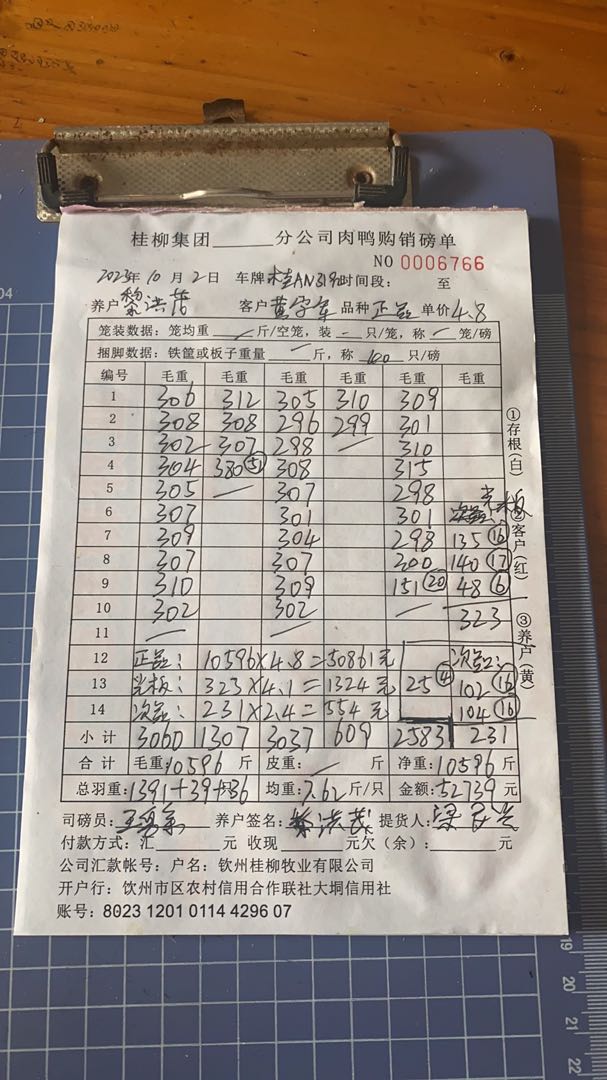 桂柳集团______分公司肉鸭购销磅单
NO 0006766
2023年10月2日 车牌 桂AN319 时间段： 至
养户 黎洪茂 客户 黄字军 品种 正品 单价 4.8
笼装数据：笼均重 / 斤/空笼，装 - 只/笼，称 / 笼/磅
捆脚数据：铁筐或板子重量 / 斤，称 120 只/磅
编号 毛重 毛重 毛重 毛重 毛重 毛重
1 306 312 305 310 309
2 308 308 296 299 301
3 302 307 298 / 310
4 304 380 ㊿ 308 315
5 305 / 307 298 光板
6 307 301 301 次品：
7 309 304 298 135 ⑯
8 307 307 300 140 ⑰
9 310 309 151 ⑳ 48 ⑥
10 302 302 / 323
11 / /
12 正品：10596×4.8=50861元 次品：
13 光板：323×4.1=1324元 25 ④ 102 ⑯
14 次品：231×2.4=554元 104 ⑯
小计 3060 1307 3037 609 2583 231
合计 毛重：10596 斤 皮重： / 斤 净重：10596 斤
总羽重：1391+39+36 均重：7.62 斤/只 金额：52739 元
司磅员： 养户签名：黎洪茂 提货人：
付款方式：汇______元 收现______元欠（余）：______元
公司汇款帐号：户名：钦州桂柳牧业有限公司
开户行：钦州市区农村信用合作联社大垌信用社
账号：8023 1201 0114 4296 07
①存根（白）
②客户（红）
③养户（黄）
04
19
20
21
22